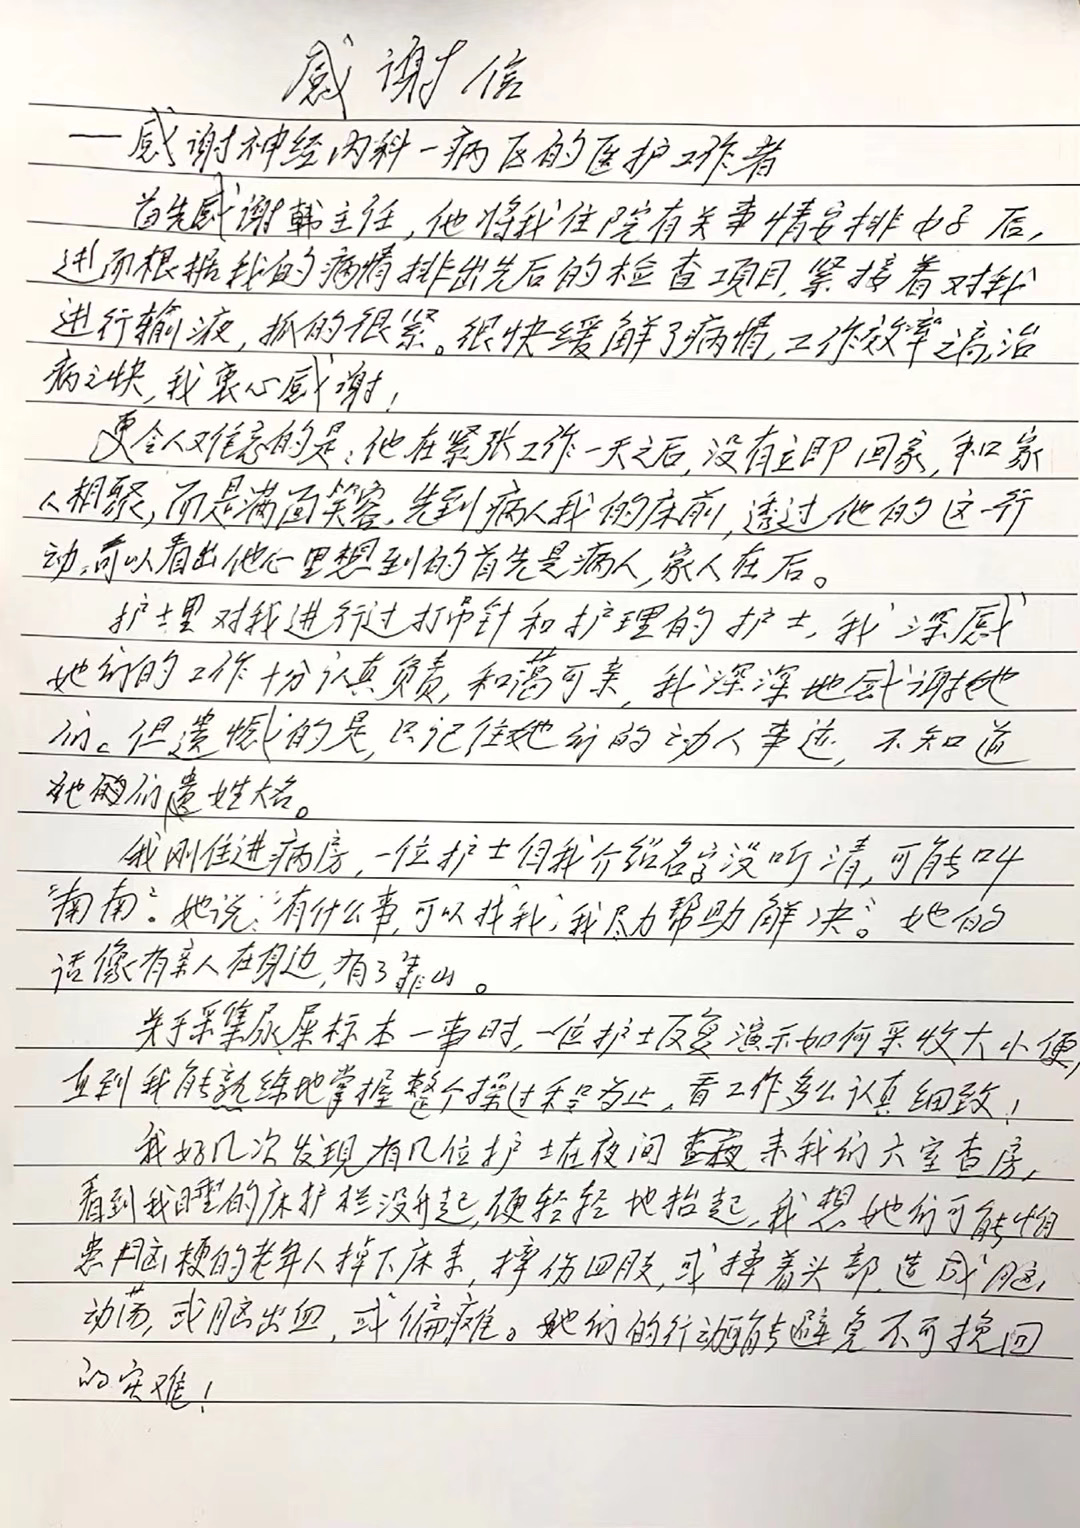 感谢信
——感谢神经内科一病区的医护工作者
首先感谢韩主任，他将我住院有关事情安排好后，
进而根据我的病情排出先后的检查项目，紧接着对我
进行输液，抓的很紧。很快缓解了病情，工作效率之高，治
病之快，我衷心感谢！
更令人难忘的是：他在紧张工作一天之后，没有立即回家，和家
人相聚，而是满面笑容，先到病人我的床前，透过他的这一行
动，可以看出他心里想到的首先是病人，家人在后。
护士里对我进行过打吊针和护理的护士，我深感
她们的工作十分认真负责，和蔼可亲，我深深地感谢她
们。但遗憾的是，只记住她们的动人事迹，不知道
她们遗姓大名。
我刚住进病房，一位护士自我介绍名字没听清，可能叫
“南南”。她说：“有什么事，可以找我，我尽力帮助解决”。她的
话像有亲人在身边，有了靠山。
关于采集尿屎标本一事时，一位护士反复演示如何采收大小便，
直到我能熟练地掌握整个操过程为止，看工作多么认真细致！
我好几次发现有几位护士在夜间来我们六室查房，
看到我睡的床护栏没升起，便轻轻地抬起，我想她们可能怕
患脑梗的老年人掉下床来，摔伤四肢，或摔着头部，造成脑
动荡，或脑出血，或偏瘫。她们的行动能避免不可挽回
的灾难！